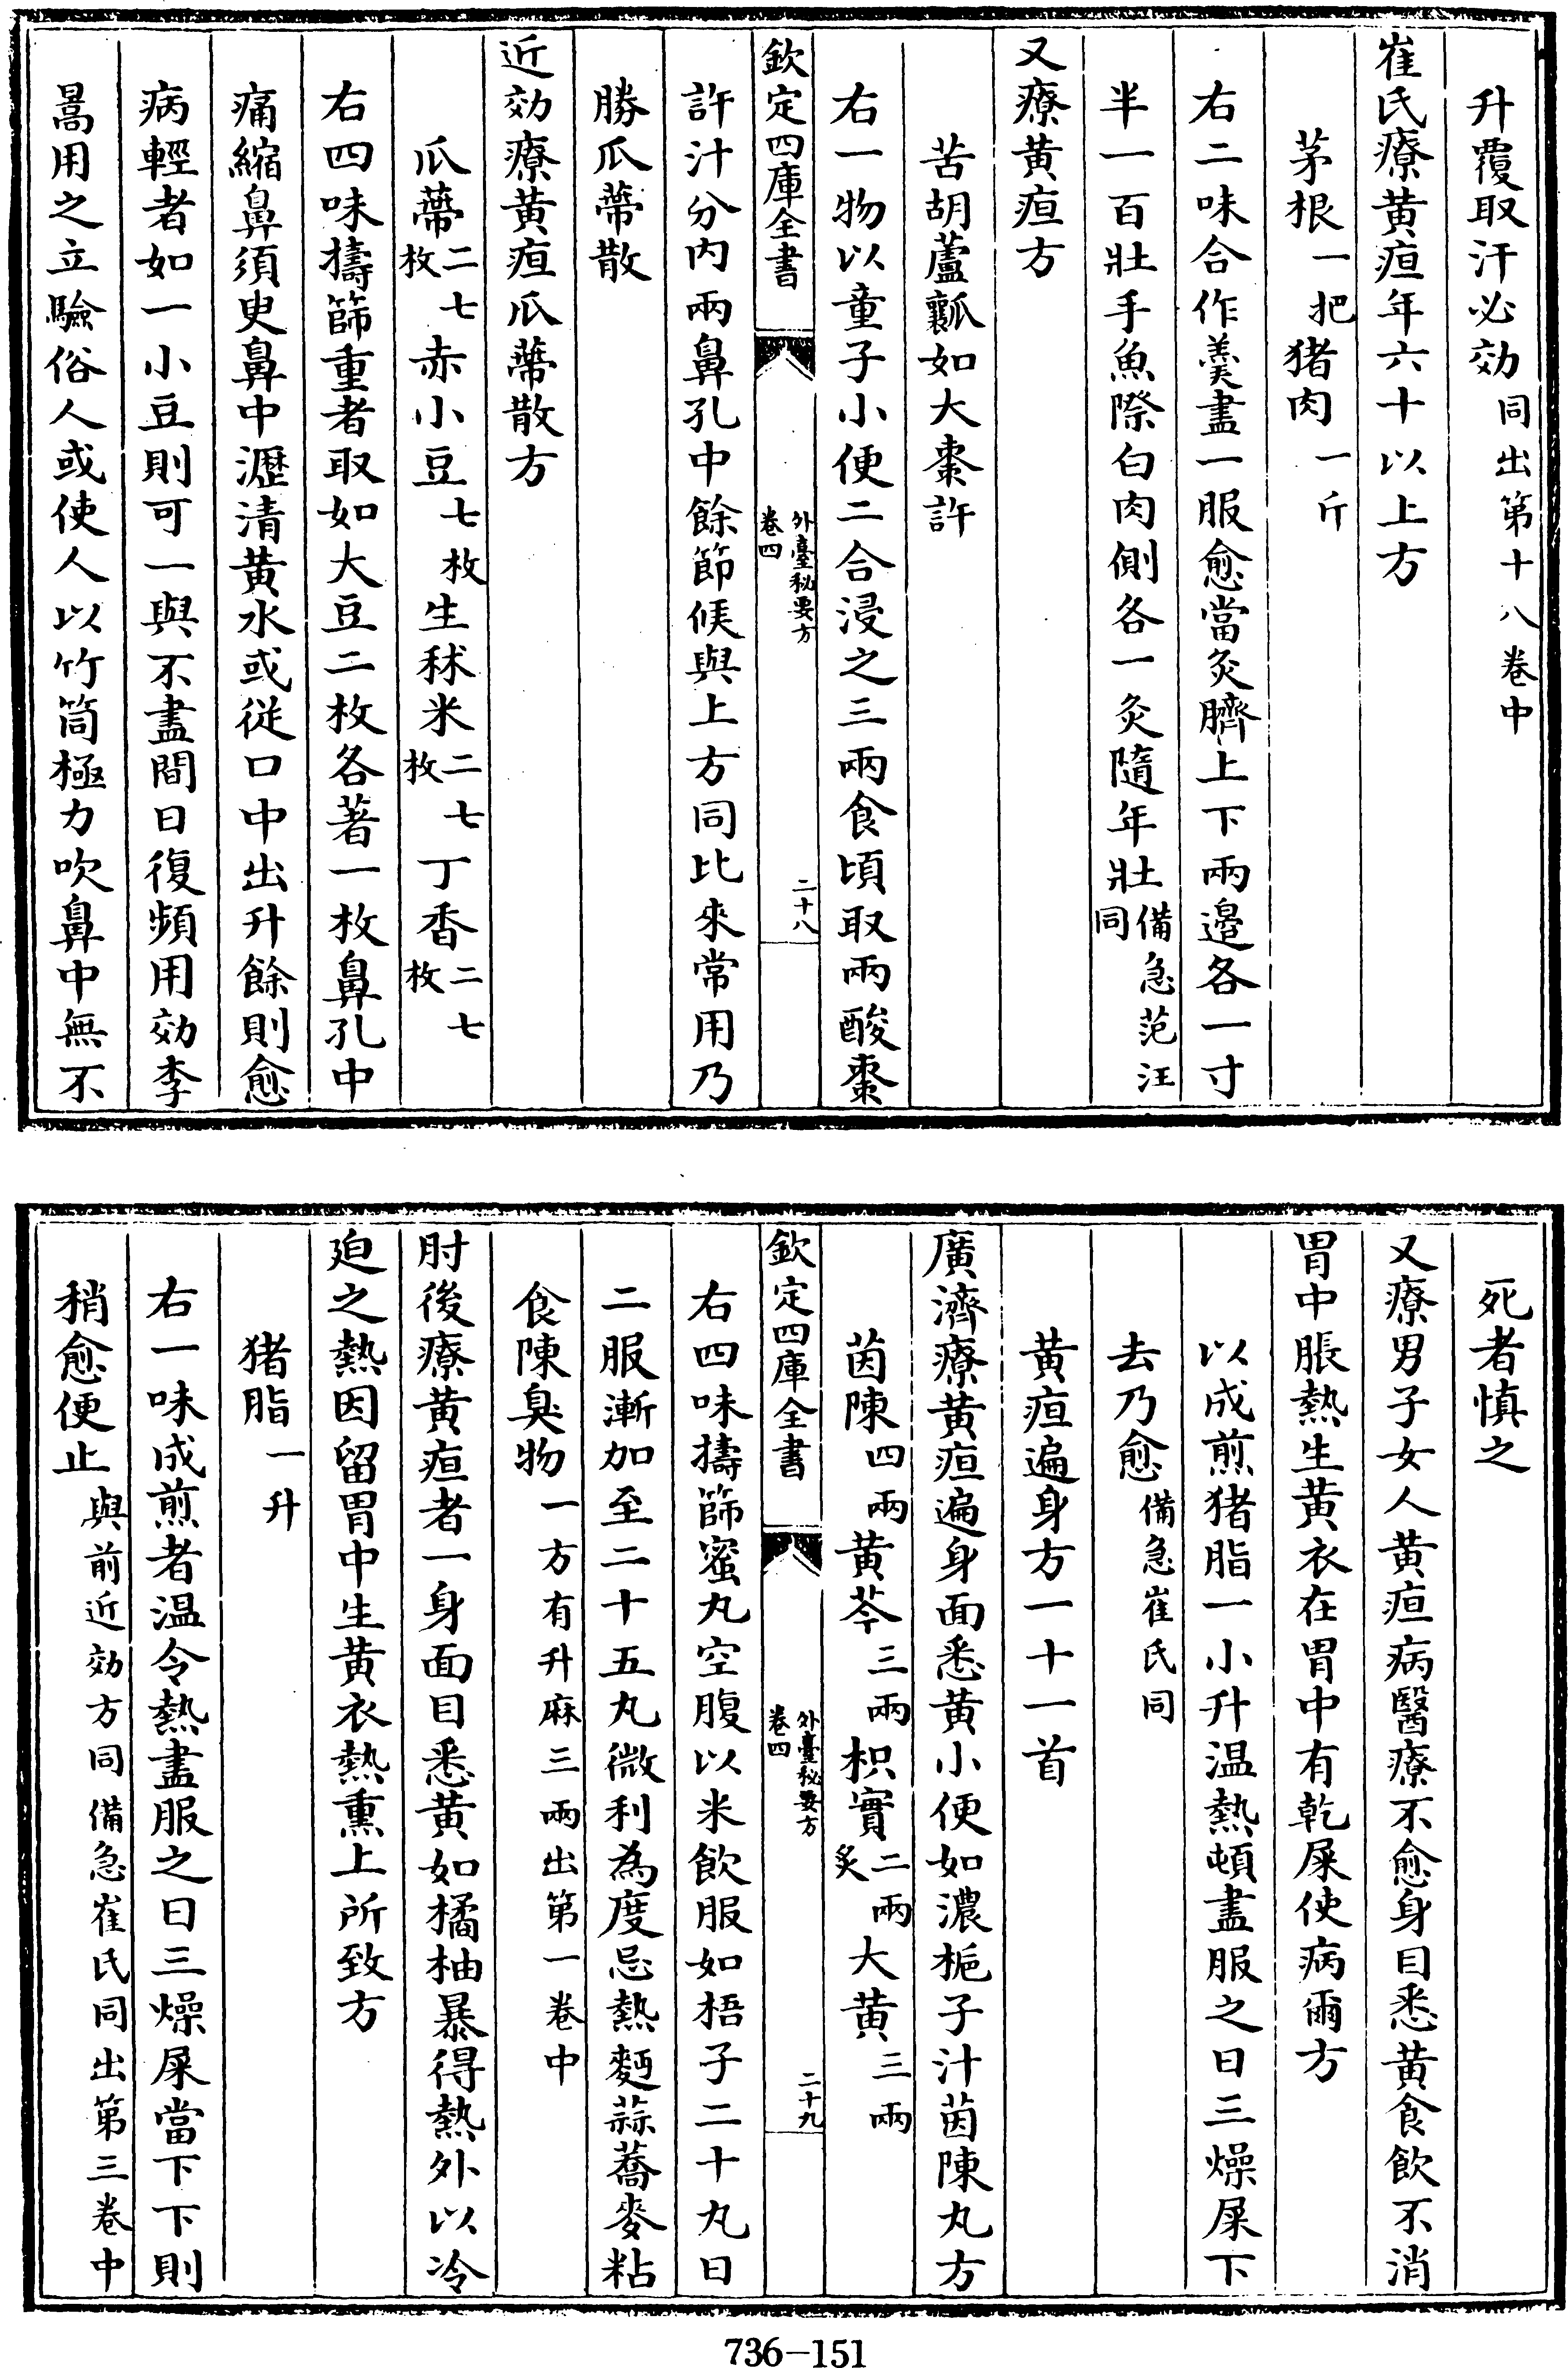 升覆取汗必効同出第十八卷中
崔氏療黄疸年六十以上方
茅根一把猪肉一斤
右二味合作羹盡一服愈當灸臍上下兩邉各一寸
半一百壯手魚際白肉側各一灸隨年壯備急范汪同
又療黄疸方
苦胡蘆瓤如大棗許
右一物以童子小便二合浸之三兩食頃取兩酸棗
欽定四庫全書 外臺秘要方卷四 二十八
許汁分内兩鼻孔中餘節候與上方同比來常用乃
勝瓜蔕散
近効療黄疸瓜蔕散方
瓜蔕二七枚赤小豆七枚生秫米二七枚丁香二七枚
右四味擣篩重者取如大豆二枚各著一枚鼻孔中
痛縮鼻須臾鼻中瀝清黄水或從口中出升餘則愈
病輕者如一小豆則可一與不盡間日復頻用効李
暠用之立驗俗人或使人以竹筒極力吹鼻中無不
死者慎之
又療男子女人黄疸病醫療不愈身目悉黄食飲不消
胃中脹熱生黄衣在胃中有乾屎使病爾方
以成煎猪脂一小升温熱頓盡服之日三燥屎下
去乃愈備急崔氏同
黄疸遍身方一十一首
廣濟療黄疸遍身面悉黄小便如濃梔子汁茵陳丸方
茵陳四兩黄芩三兩枳實二兩炙大黄三兩
欽定四庫全書 外臺秘要方卷四 二十九
右四味擣篩蜜丸空腹以米飲服如梧子二十丸日
二服漸加至二十五丸微利為度忌熱麪蒜蕎麥粘
食陳臭物一方有升麻三兩出第一卷中
肘後療黄疸者一身面目悉黄如橘柚暴得熱外以冷
廹之熱因留胃中生黄衣熱熏上所致方
猪脂一升
右一味成煎者温令熱盡服之日三燥屎當下下則
稍愈便止與前近効方同備急崔氏同出第三卷中
736-151